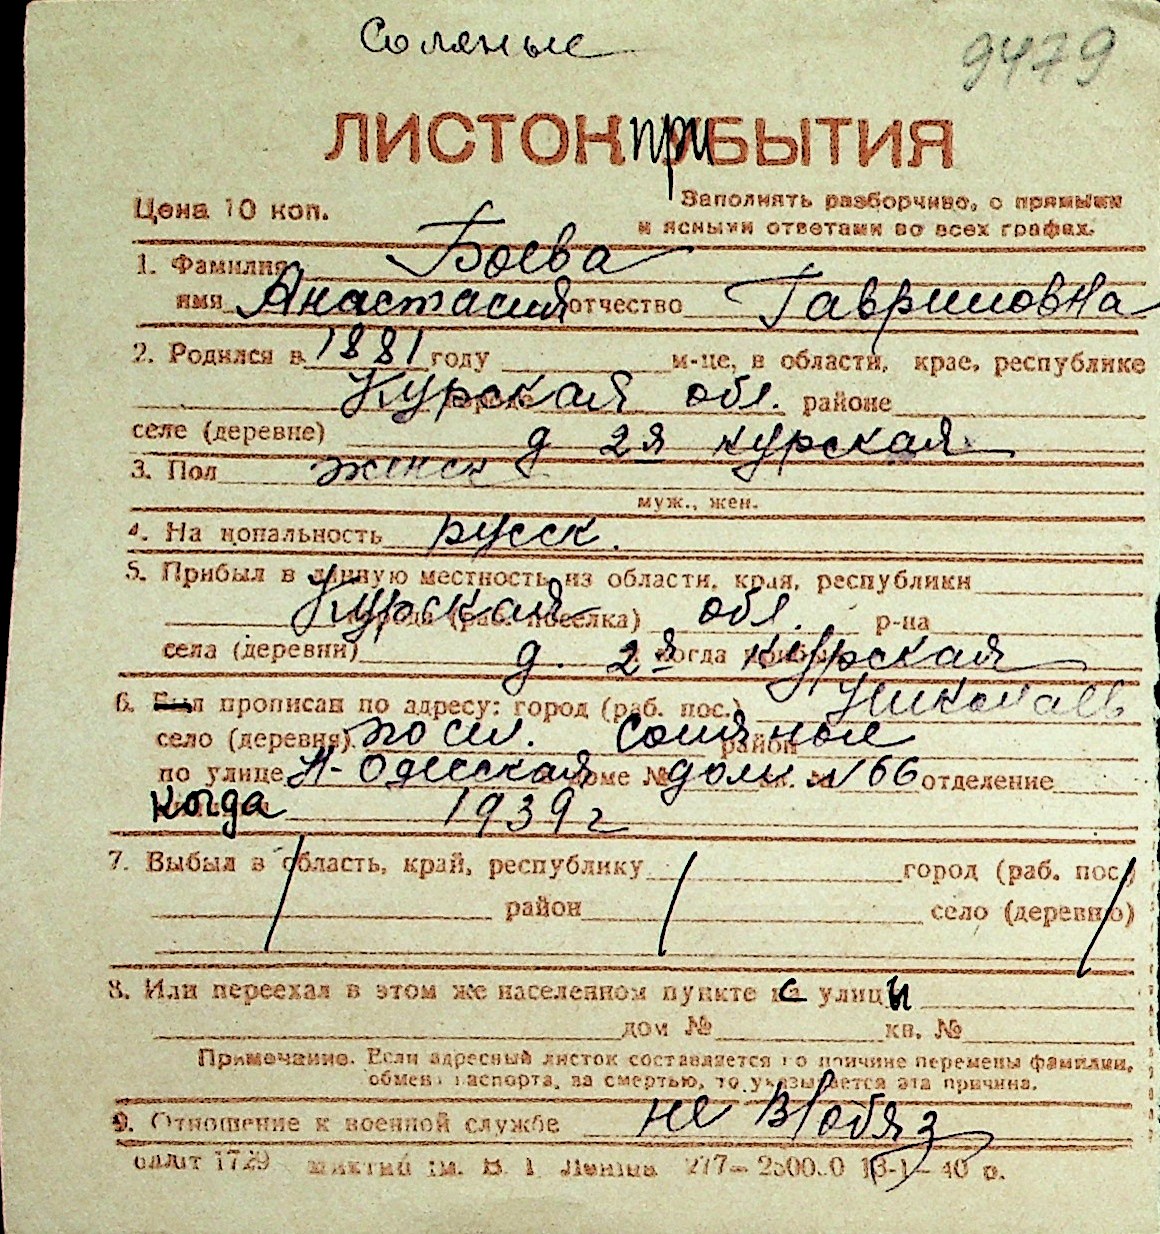 Соляные
9479
ЛИСТОК прИБЫТИЯ
Цена 10 коп.
Заполнять разборчиво, с прямыми
и ясными ответами во всех графах.
1. Фамилия Боева
имя Анастасия отчество Гавриловна
2. Родился в 1881 году м-це, в области, крае, республике
Курская обл. районе
селе (деревне) д 2я Курская
3. Пол женск
муж., жен.
4. Национальность русск.
5. Прибыл в данную местность из области, края, республики
Курская города (раб. поселка) обл. р-на
села (деревни) д. 2я когда прибыл Курская
6. Был прописан по адресу: город (раб. пос.) Николаев
село (деревня) посел. Соляные район
по улице Н-Одесская доме № дом № 66 отделение
когда 1939 г
7. Выбыл в область, край, республику город (раб. пос.)
район село (деревню)
8. Или переехал в этом же населенном пункте с улицы
дом № кв. №
Примечание. Если адресный листок составляется по причине перемены фамилии,
обмена паспорта, за смертью, то указывается эта причина.
9. Отношение к военной службе не в/обяз
1729 им. В. И. Ленина 277—25000 13-1—40 р.